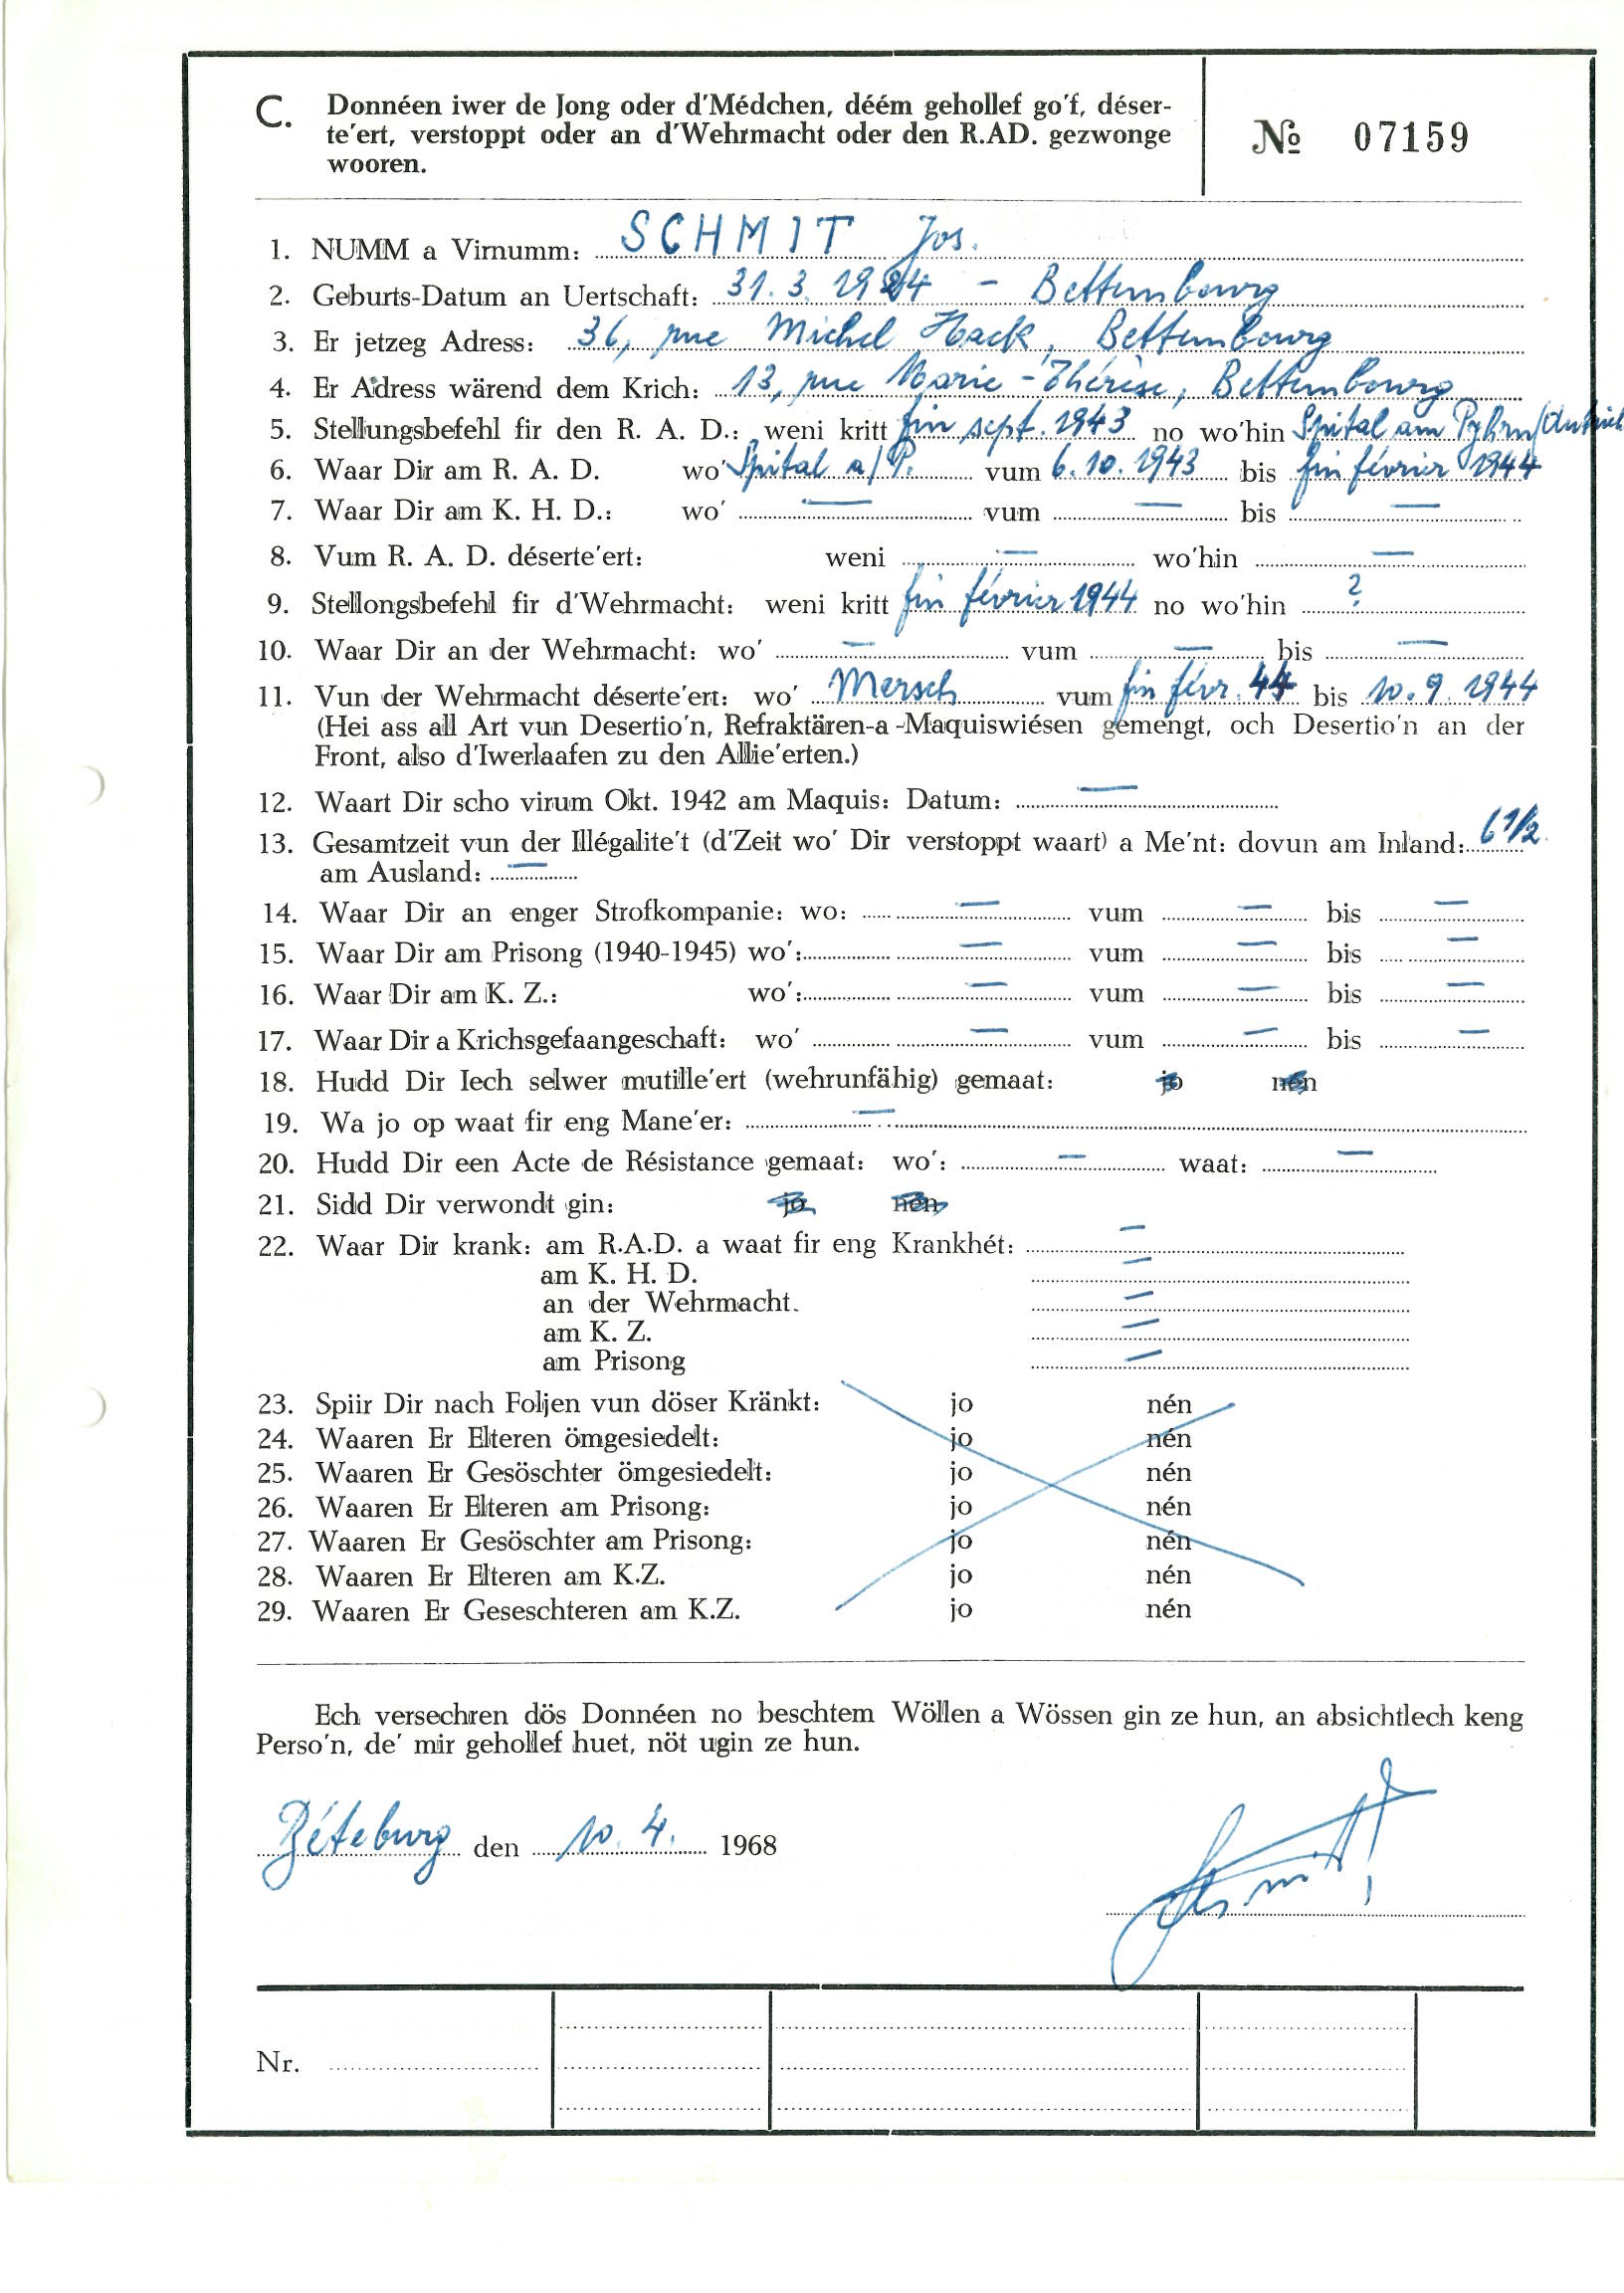 C. Donnéen iwer de Jong oder d'Médchen, déém gehollef go'f, déser-
te'ert, verstoppt oder an d'Wehrmacht oder den R.AD. gezwonge
wooren.
№ 07159
1. NUMM a Virnumm: SCHMIT Jos.
2. Geburts-Datum an Uertschaft: 31.3.1924 - Bettembourg
3. Er jetzeg Adress: 36, rue Michel Hack, Bettembourg
4. Er Adress wärend dem Krich: 13, rue Marie-Thérèse, Bettembourg
5. Stellungsbefehl fir den R. A. D.: weni kritt fin sept. 1943 no wo'hin Spital am Pyhrn/Autrich
6. Waar Dir am R. A. D. wo' Spital a/P. vum 6.10.1943 bis fin février 1944
7. Waar Dir am K. H. D.: wo' — vum — bis —
8. Vum R. A. D. déserte'ert: weni — wo'hin —
9. Stellongsbefehl fir d'Wehrmacht: weni kritt fin février 1944 no wo'hin ?
10. Waar Dir an der Wehrmacht: wo' — vum — bis —
11. Vun der Wehrmacht déserte'ert: wo' Mersch vum fin févr. 44 bis 10.9.1944
(Hei ass all Art vun Desertio'n, Refraktären-a-Maquiswiésen gemengt, och Desertio'n an der
Front, also d'Iwerlaafen zu den Allie'erten.)
12. Waart Dir scho virum Okt. 1942 am Maquis: Datum: —
13. Gesamtzeit vun der Illégalite't (d'Zeit wo' Dir verstoppt waart) a Me'nt: dovun am Inland: 6 1/2
am Ausland: —
14. Waar Dir an enger Strofkompanie: wo: — vum — bis —
15. Waar Dir am Prisong (1940-1945) wo': — vum — bis —
16. Waar Dir am K. Z.: wo': — vum — bis —
17. Waar Dir a Krichsgefaangeschaft: wo' — vum — bis —
18. Hudd Dir Iech selwer mutille'ert (wehrunfähig) gemaat: jo nén
19. Wa jo op waat fir eng Mane'er: —
20. Hudd Dir een Acte de Résistance gemaat: wo': — waat: —
21. Sidd Dir verwondt gin: jo nén
22. Waar Dir krank: am R.A.D. a waat fir eng Krankhét: —
am K. H. D. —
an der Wehrmacht. —
am K. Z. —
am Prisong —
23. Spiir Dir nach Foljen vun döser Kränkt: jo nén
24. Waaren Er Elteren ömgesiedelt: jo nén
25. Waaren Er Gesöschter ömgesiedelt: jo nén
26. Waaren Er Elteren am Prisong: jo nén
27. Waaren Er Gesöschter am Prisong: jo nén
28. Waaren Er Elteren am K.Z. jo nén
29. Waaren Er Geseschteren am K.Z. jo nén
Ech versechren dös Donnéen no beschtem Wöllen a Wössen gin ze hun, an absichtlech keng
Perso'n, de' mir gehollef huet, nöt ugin ze hun.
Béteburg den 10.4. 1968
Schmit
Nr.